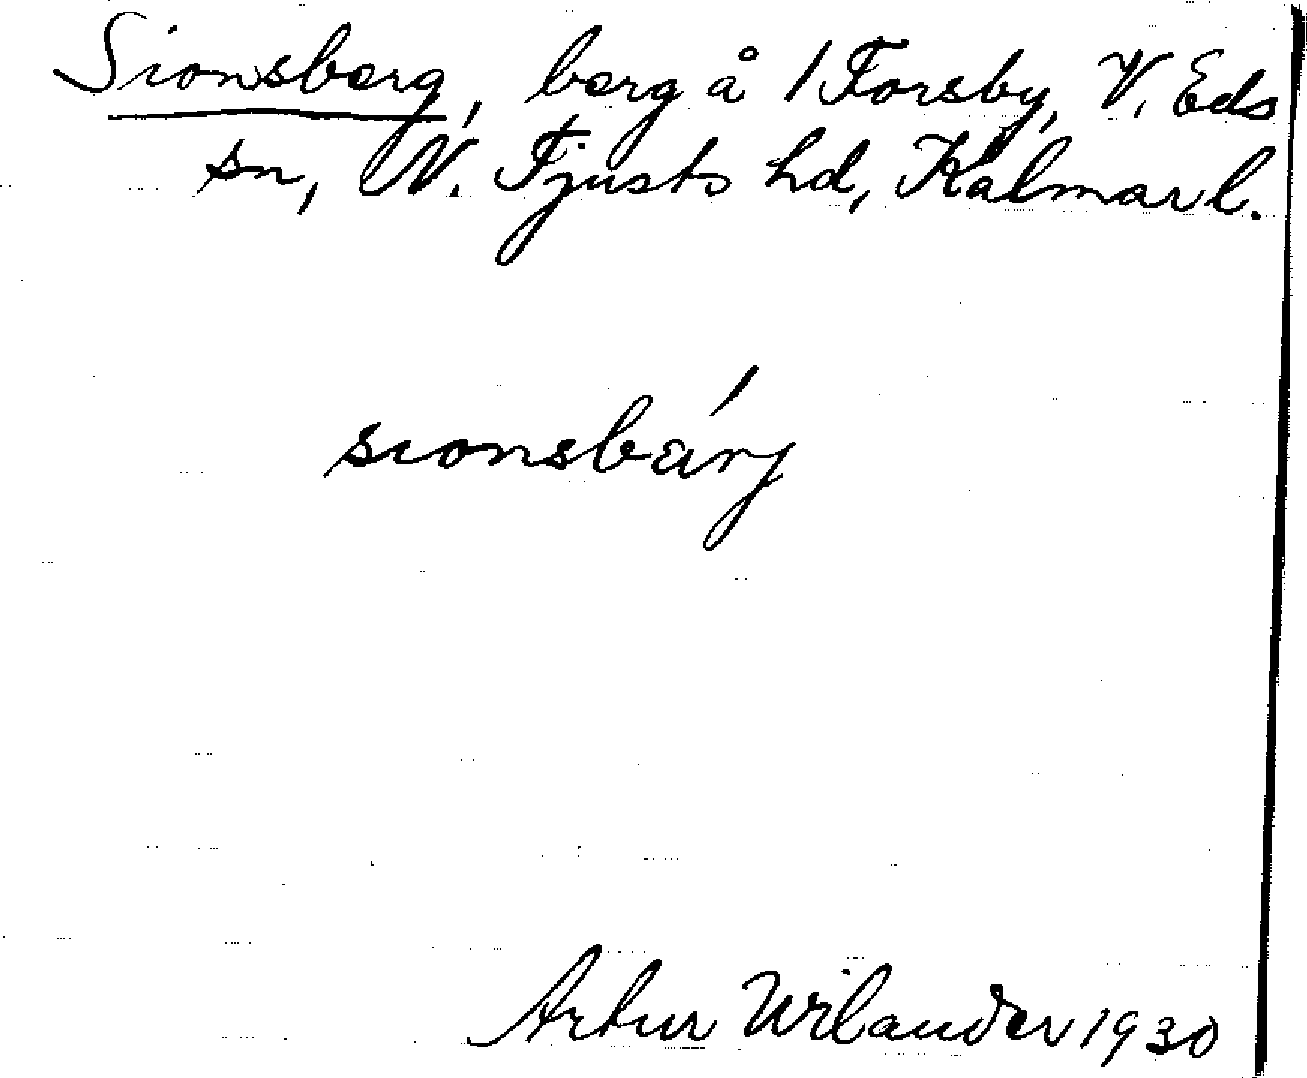 Sionsberg, berg å 1 Forsby, V. Eds
sn, N. Tjusts hd, Kalmar l.
sionsbärj
Artur Wilander 1930